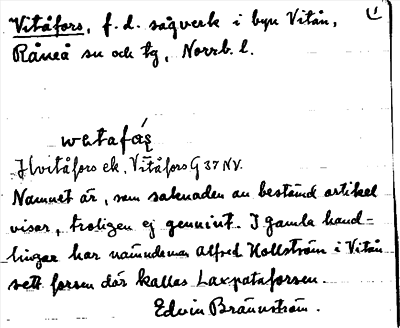 Vitåfors, f. d. sågverk i byn Vitån,
Råneå sn och tg, Norrb. l.
Hvitåfors ek, Vitåfors G 37 NV.
Namnet är, som saknaden av bestämd artikel
visar, troligen ej genuint. I gamla hand-
lingar har nämndeman Alfred Hollström i Vitån
sett forsen där kallas Laxpataforsen.
Edvin Brännström.